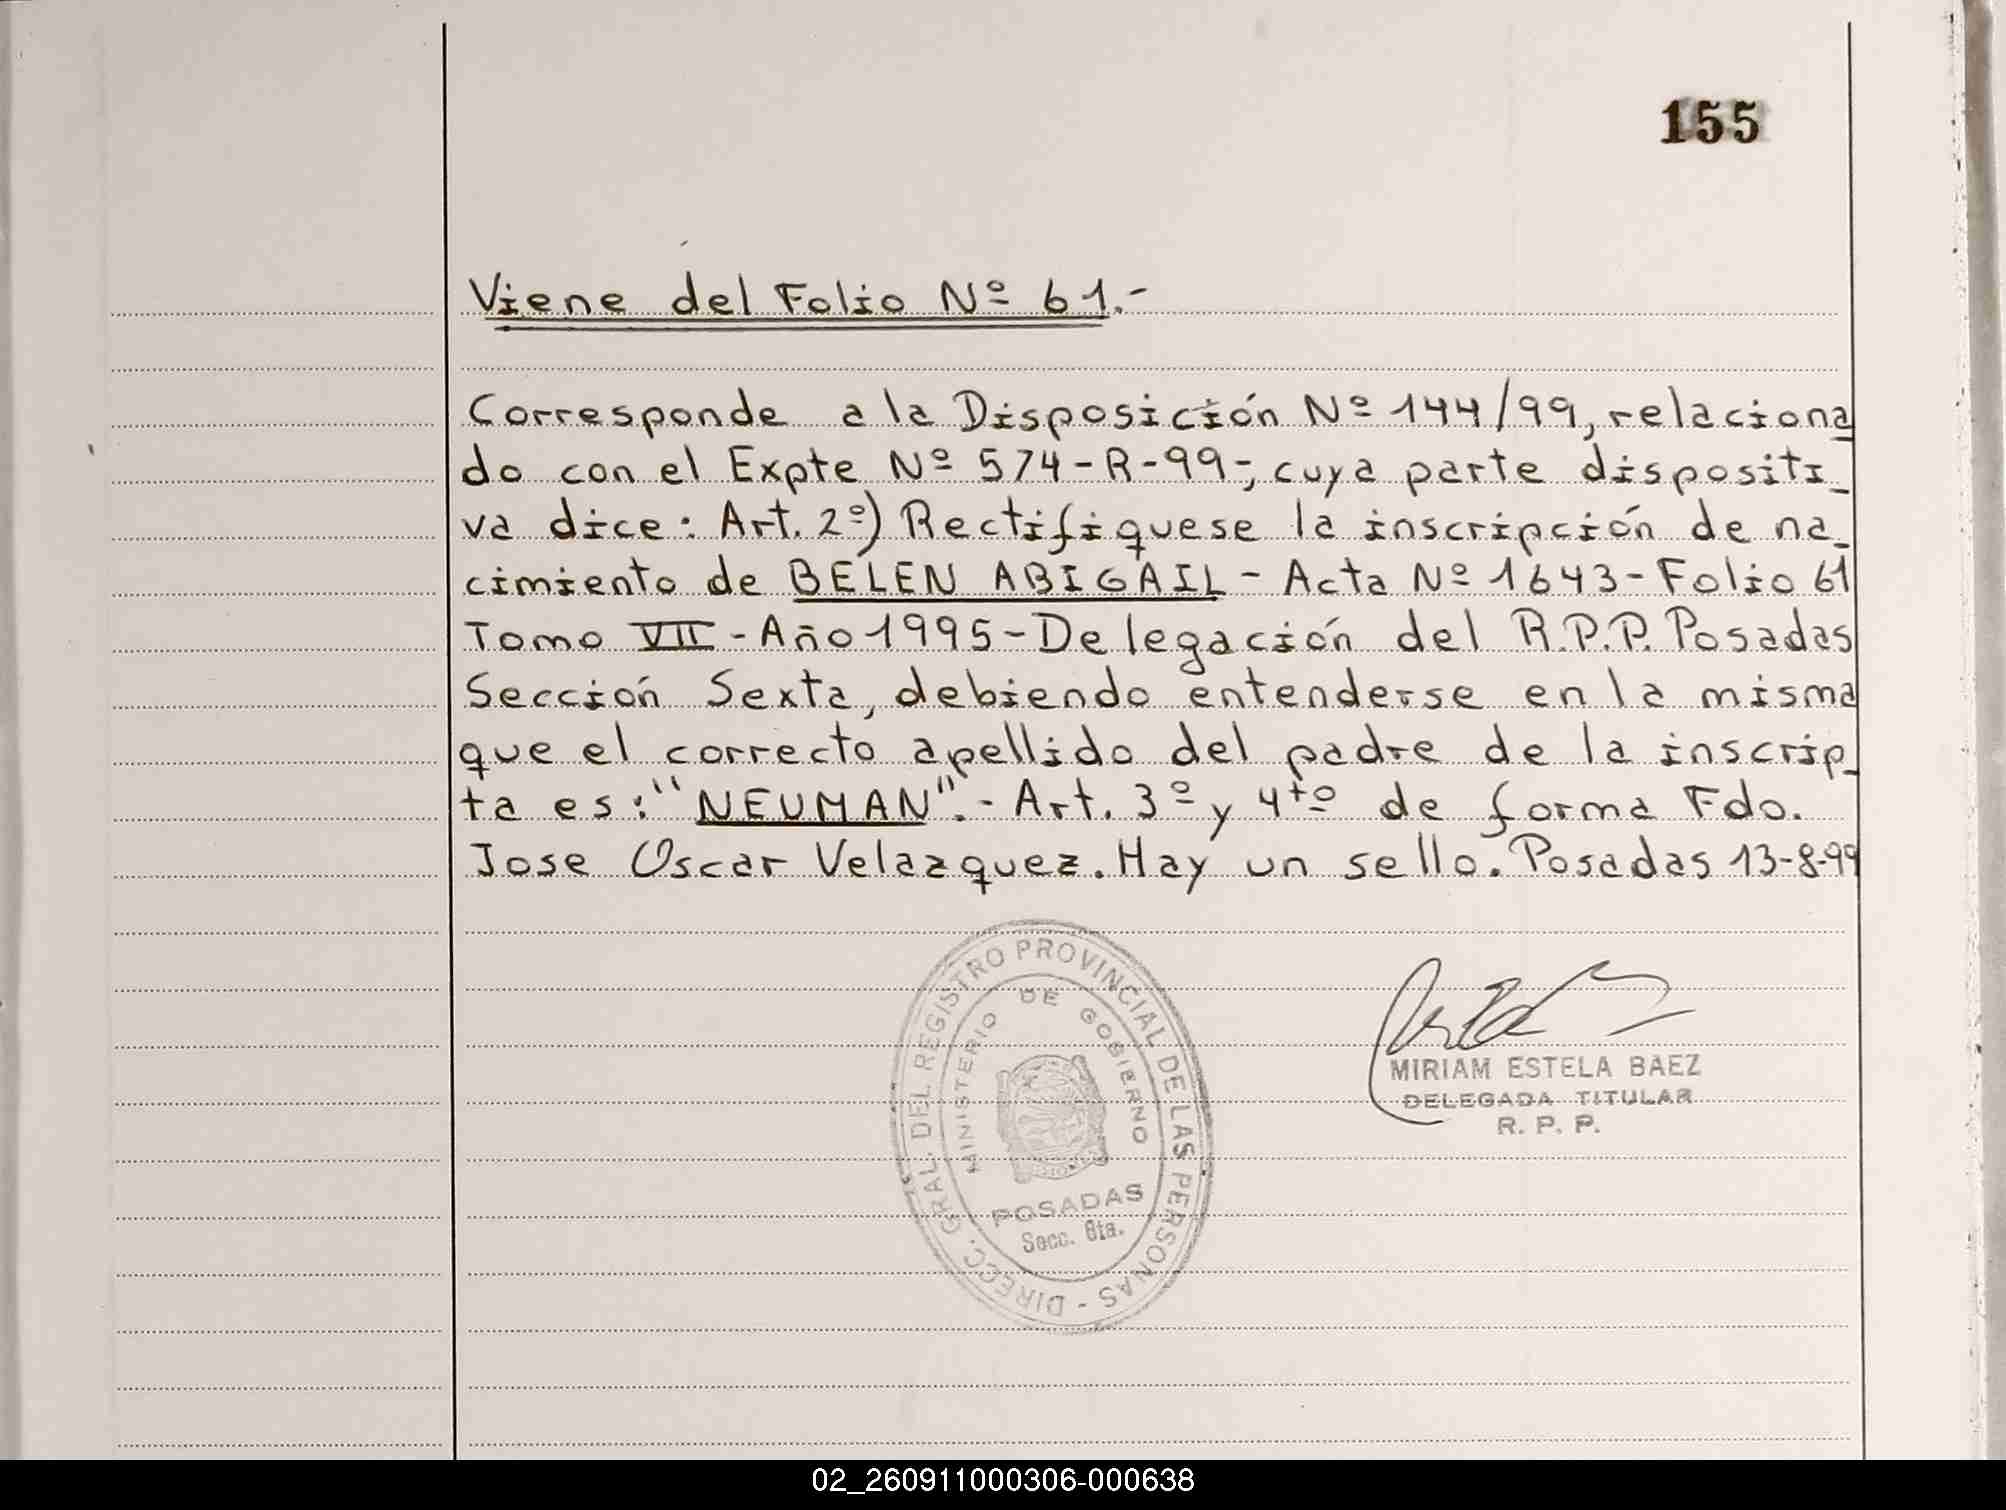 155
Viene del Folio Nº 61.-
Corresponde a la Disposición Nº 144/99, relaciona
do con el Expte Nº 574-R-99-, cuya parte dispositi_
va dice: Art. 2º) Rectifiquese la inscripción de na_
cimiento de BELEN ABIGAIL - Acta Nº 1643 - Folio 61
Tomo VII - Año 1995 - Delegación del R.P.P. Posadas
Sección Sexta, debiendo entenderse en la misma
que el correcto apellido del padre de la inscrip_
ta es: "NEUMAN".- Art. 3º y 4to de forma Fdo.
Jose Oscar Velazquez. Hay un sello. Posadas 13-8-99
DIRECC. GRAL. DEL REGISTRO PROVINCIAL DE LAS PERSONAS -
MINISTERIO DE GOBIERNO
POSADAS
Secc. 6ta.
MIRIAM ESTELA BAEZ
DELEGADA TITULAR
R. P. P.
02_260911000306-000638